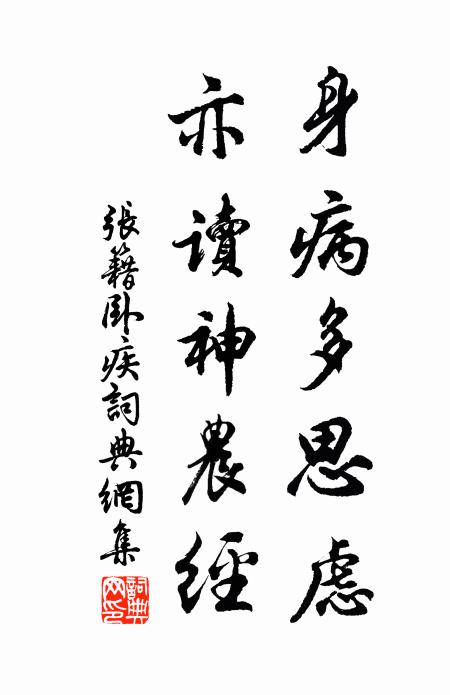 身病多思慮
亦讀神農經
張籍臥疾詞典網集
詞典網印